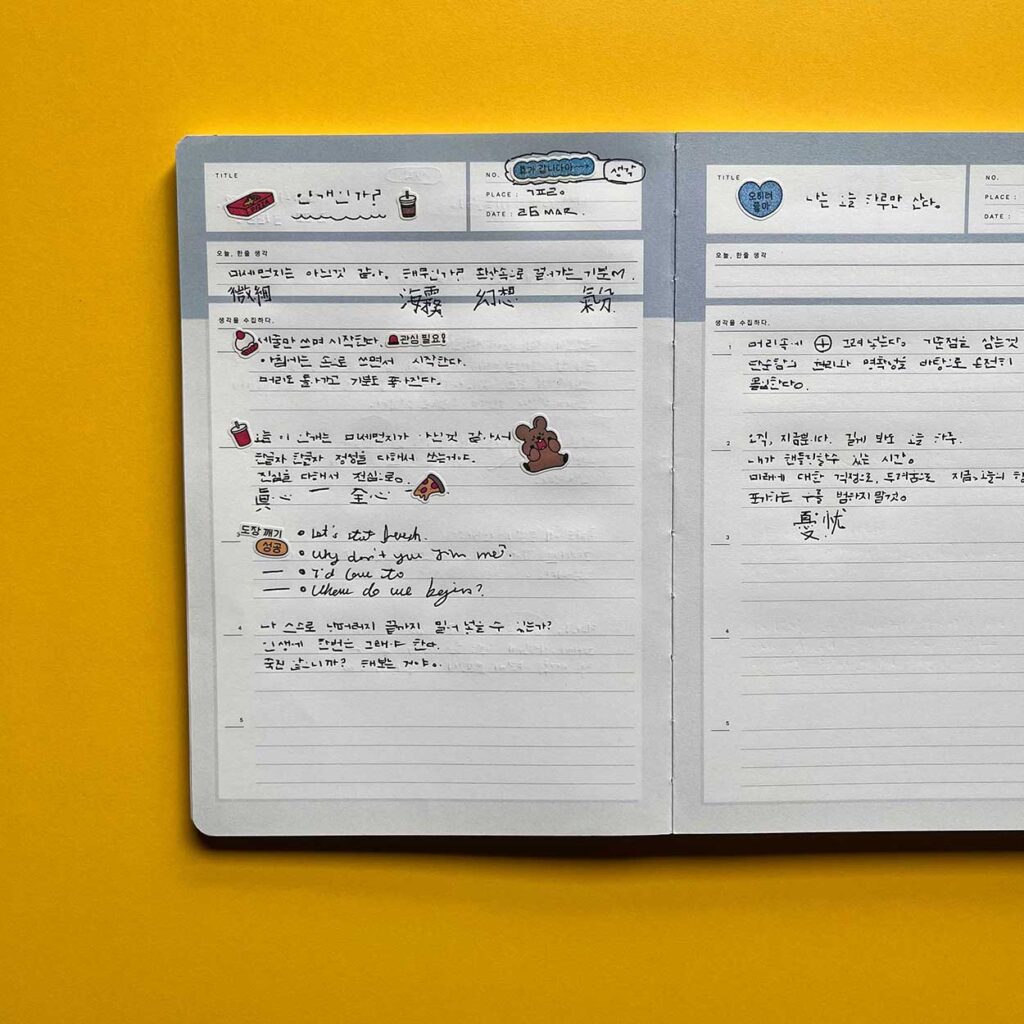 TITLE
안개인가?
NO.
갑니다아
생각
PLACE : ㄱㅍㄹㅇ
DATE : 26 MAR.
오늘, 한줄 생각
미세먼지는 아닌것 같아. 해무인가? 환상속으로 걸어가는 기분
微細 海霧 幻想 氣分
생각을 수집하다.
세줄만 쓰며 시작한다. 관심 필요!
아침에는 손으로 쓰면서 시작한다.
머리도 돌아가고 기분도 좋아진다.
오늘 이 안개는 미세먼지가 아닌것 같아서
한글자 한글자 정성을 다해서 쓰는거야.
진심을 다해서 전심으로.
眞心 一 全心
3
도장 깨기
성공
Let's start fresh.
Why don't you join me?
I'd love to
Where do we begin?
4
나 스스로 낭떠러지 끝까지 밀어 넣을 수 있는가?
인생에 한번은 그래야 한다.
멋진 않으니까? 해보는 거야.
5
TITLE
오히려 좋아
나는 오늘 하루만 산다.
NO.
PLACE :
DATE :
오늘, 한줄 생각
생각을 수집하다.
1
머리속에 ⊕ 그려 넣는다. 기준점을 삼는것
단순함의 논리와 명확성을 바탕으로 온전히
몰입한다.
2
오직, 지금뿐이다. 길게 봐도 오늘 하루.
내가 핸들링할수 있는 시간.
미래에 대한 걱정으로, 두려움으로 지금, 오늘의
포기하는 우를 범하지 말것.
憂 忧
3
4
5